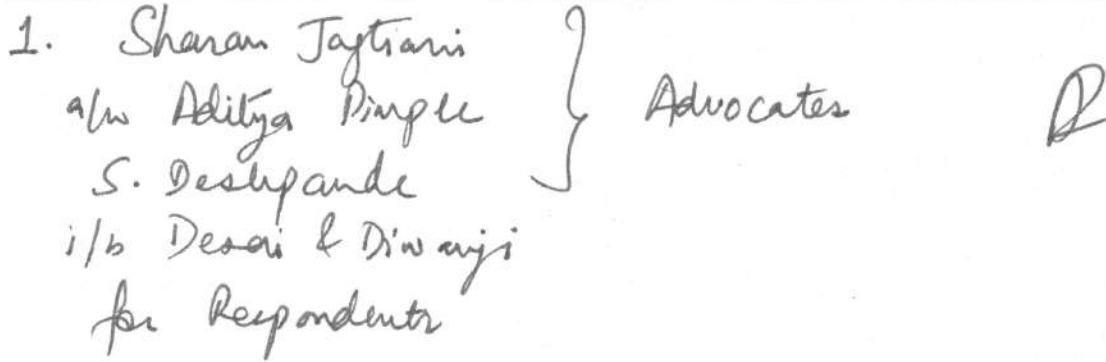 1. Sharan Jagtiani
a/w Aditya Pimple
S. Deshpande
i/b Desai & Diwanji
for Respondents
Advocates